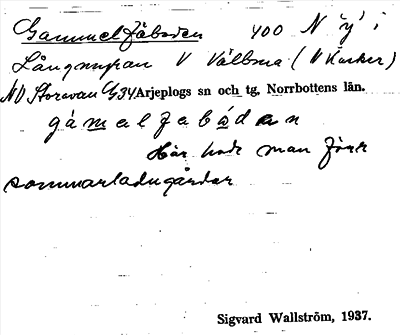 Gammelfäboden 400 N "y" i
Långnunan V Vällma (V Kasker)
NO Storavan G34 Arjeplogs sn och tg, Norrbottens län.
gámelfebódan
Här hade man förr
sommarladugårdar
Sigvard Wallström, 1937.